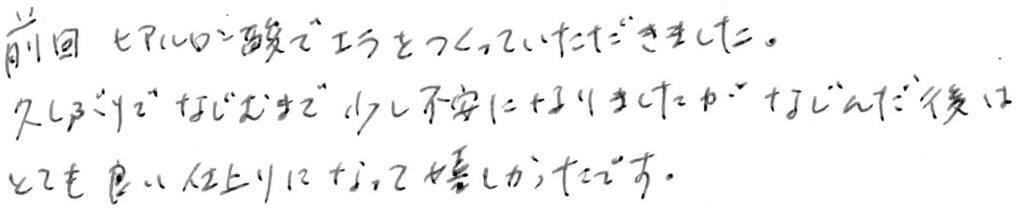 前回 ヒアルロン酸でエラをつくっていただきました。
久しぶりでなじむまで少し不安になりましたが なじんだ後は
とても良い仕上りになって嬉しかったです。